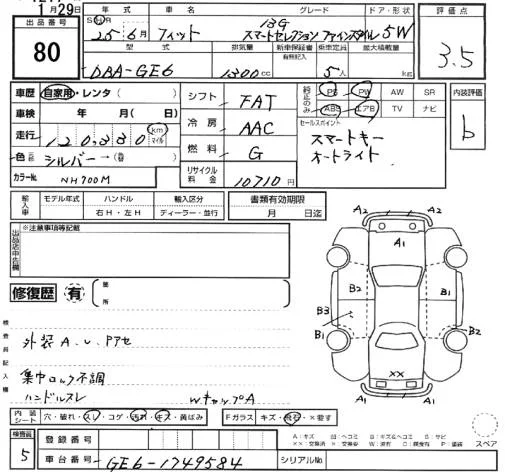 1月29日
出品番号
80
年式
車名
グレード
ドア・形状
評価点
25年6月
フィット
13G
スマートセレクション ファインスタイル
5W
3.5
型式
排気量
新車保証書
有無記載
乗車定員
最大積載量
DBA-GE6
1300cc
5人
kg
車歴
自家用・レンタ（ ）
シフト
FAT
純正のみ
PS
PW
AW
SR
内装評価
車検
年 月（ 日）
冷房
AAC
ABS
エアB
TV
ナビ
b
走行
120,330
km
マイル
セールスポイント
スマートキー
オートライト
色
シルバー→（ ）
燃料
G
カラーNo.
NH700M
リサイクル料金
10710円
輸入車
モデル年式
ハンドル
右H・左H
輸入区分
ディーラー・並行
書類有効期限
月 日迄
出品店申告欄
※注意事項等記載
修復歴
有
箇所
検査員記入欄
外装A.U.Pアセ
集中ロック不調
ハンドルスレ
WキャップA
A2
A2
A1
B2
B1
B3
B1
B2
A1
XX
内装シート
穴・破れ・スレ・コゲ・汚れ・キズ・黄ばみ
Fガラス
キズ・飛石・X要す
スペア
検査員
5
登録番号
車台番号
GE6-1749584
シリアルNo.